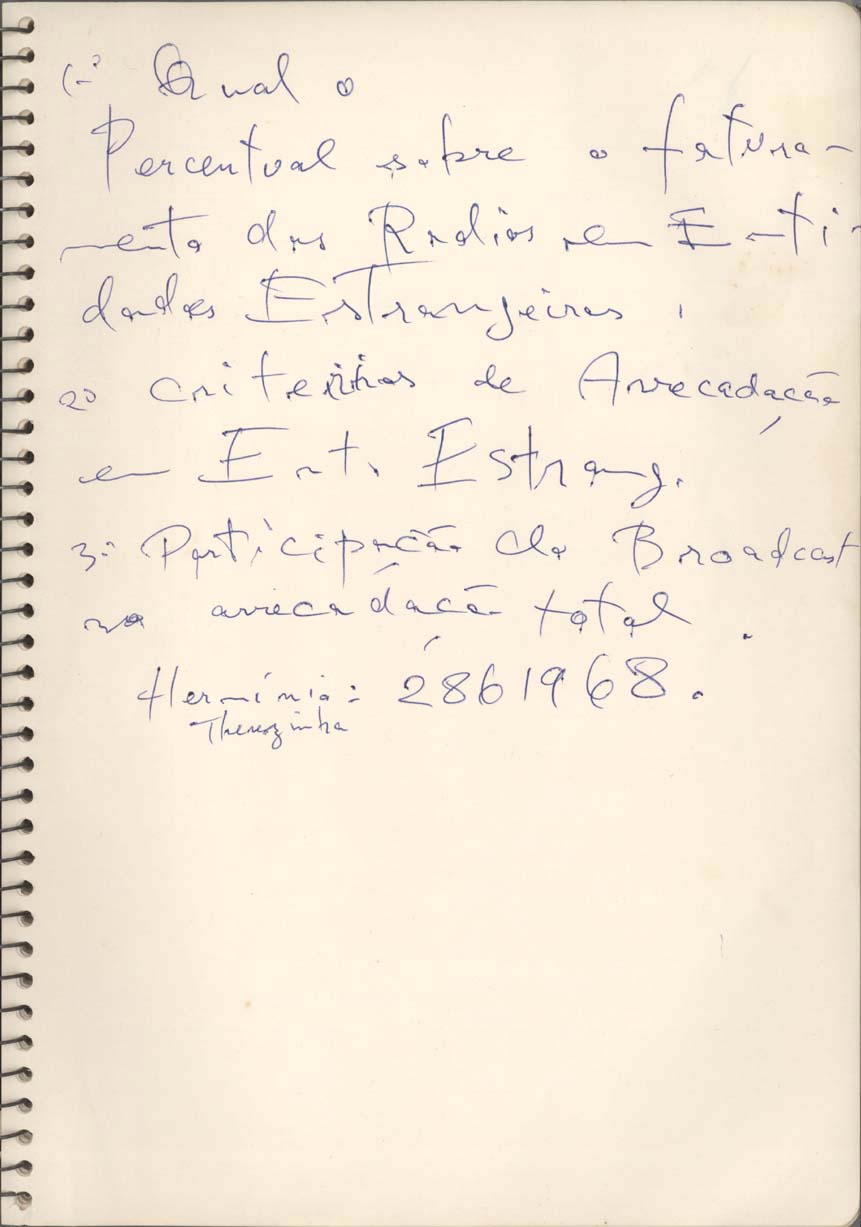 1-º Qual o
Percentual sobre o fatura-
mento das Radios em Enti-
dades Estrangeiras.
2º Criterios de Arrecadação
em Ent. Estrang.
3-º Participação do Broadcast
na arrecadação total.
Hermínio: 2861968.
Therezinha